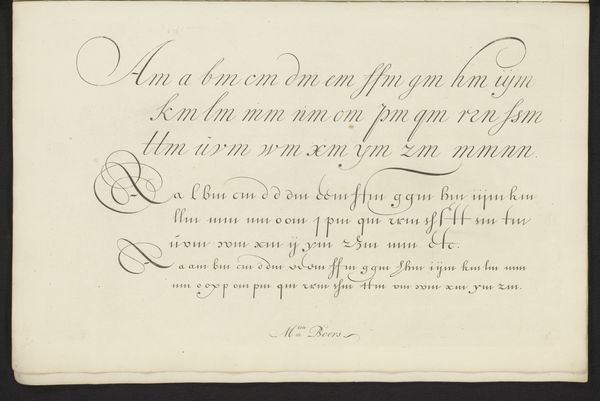 Am a bm cm dm em ffm gm hm ijm
km lm mm nm om pm qm rzn ssm
ttm uvm wm xm ym zm mmnn.
a l bm cm d d dm eem ffm g gm hm ijm km
llm mm nm oom ppm qm rrm tt sm tm
uvm wm xm ij ym zhm mm etc.
a am bm cm ddm eem ffm ggm hm ijm km lm mm
nm o o p p om pm qm rrm ttm vm wm xm ym zm.
Mtin Boers